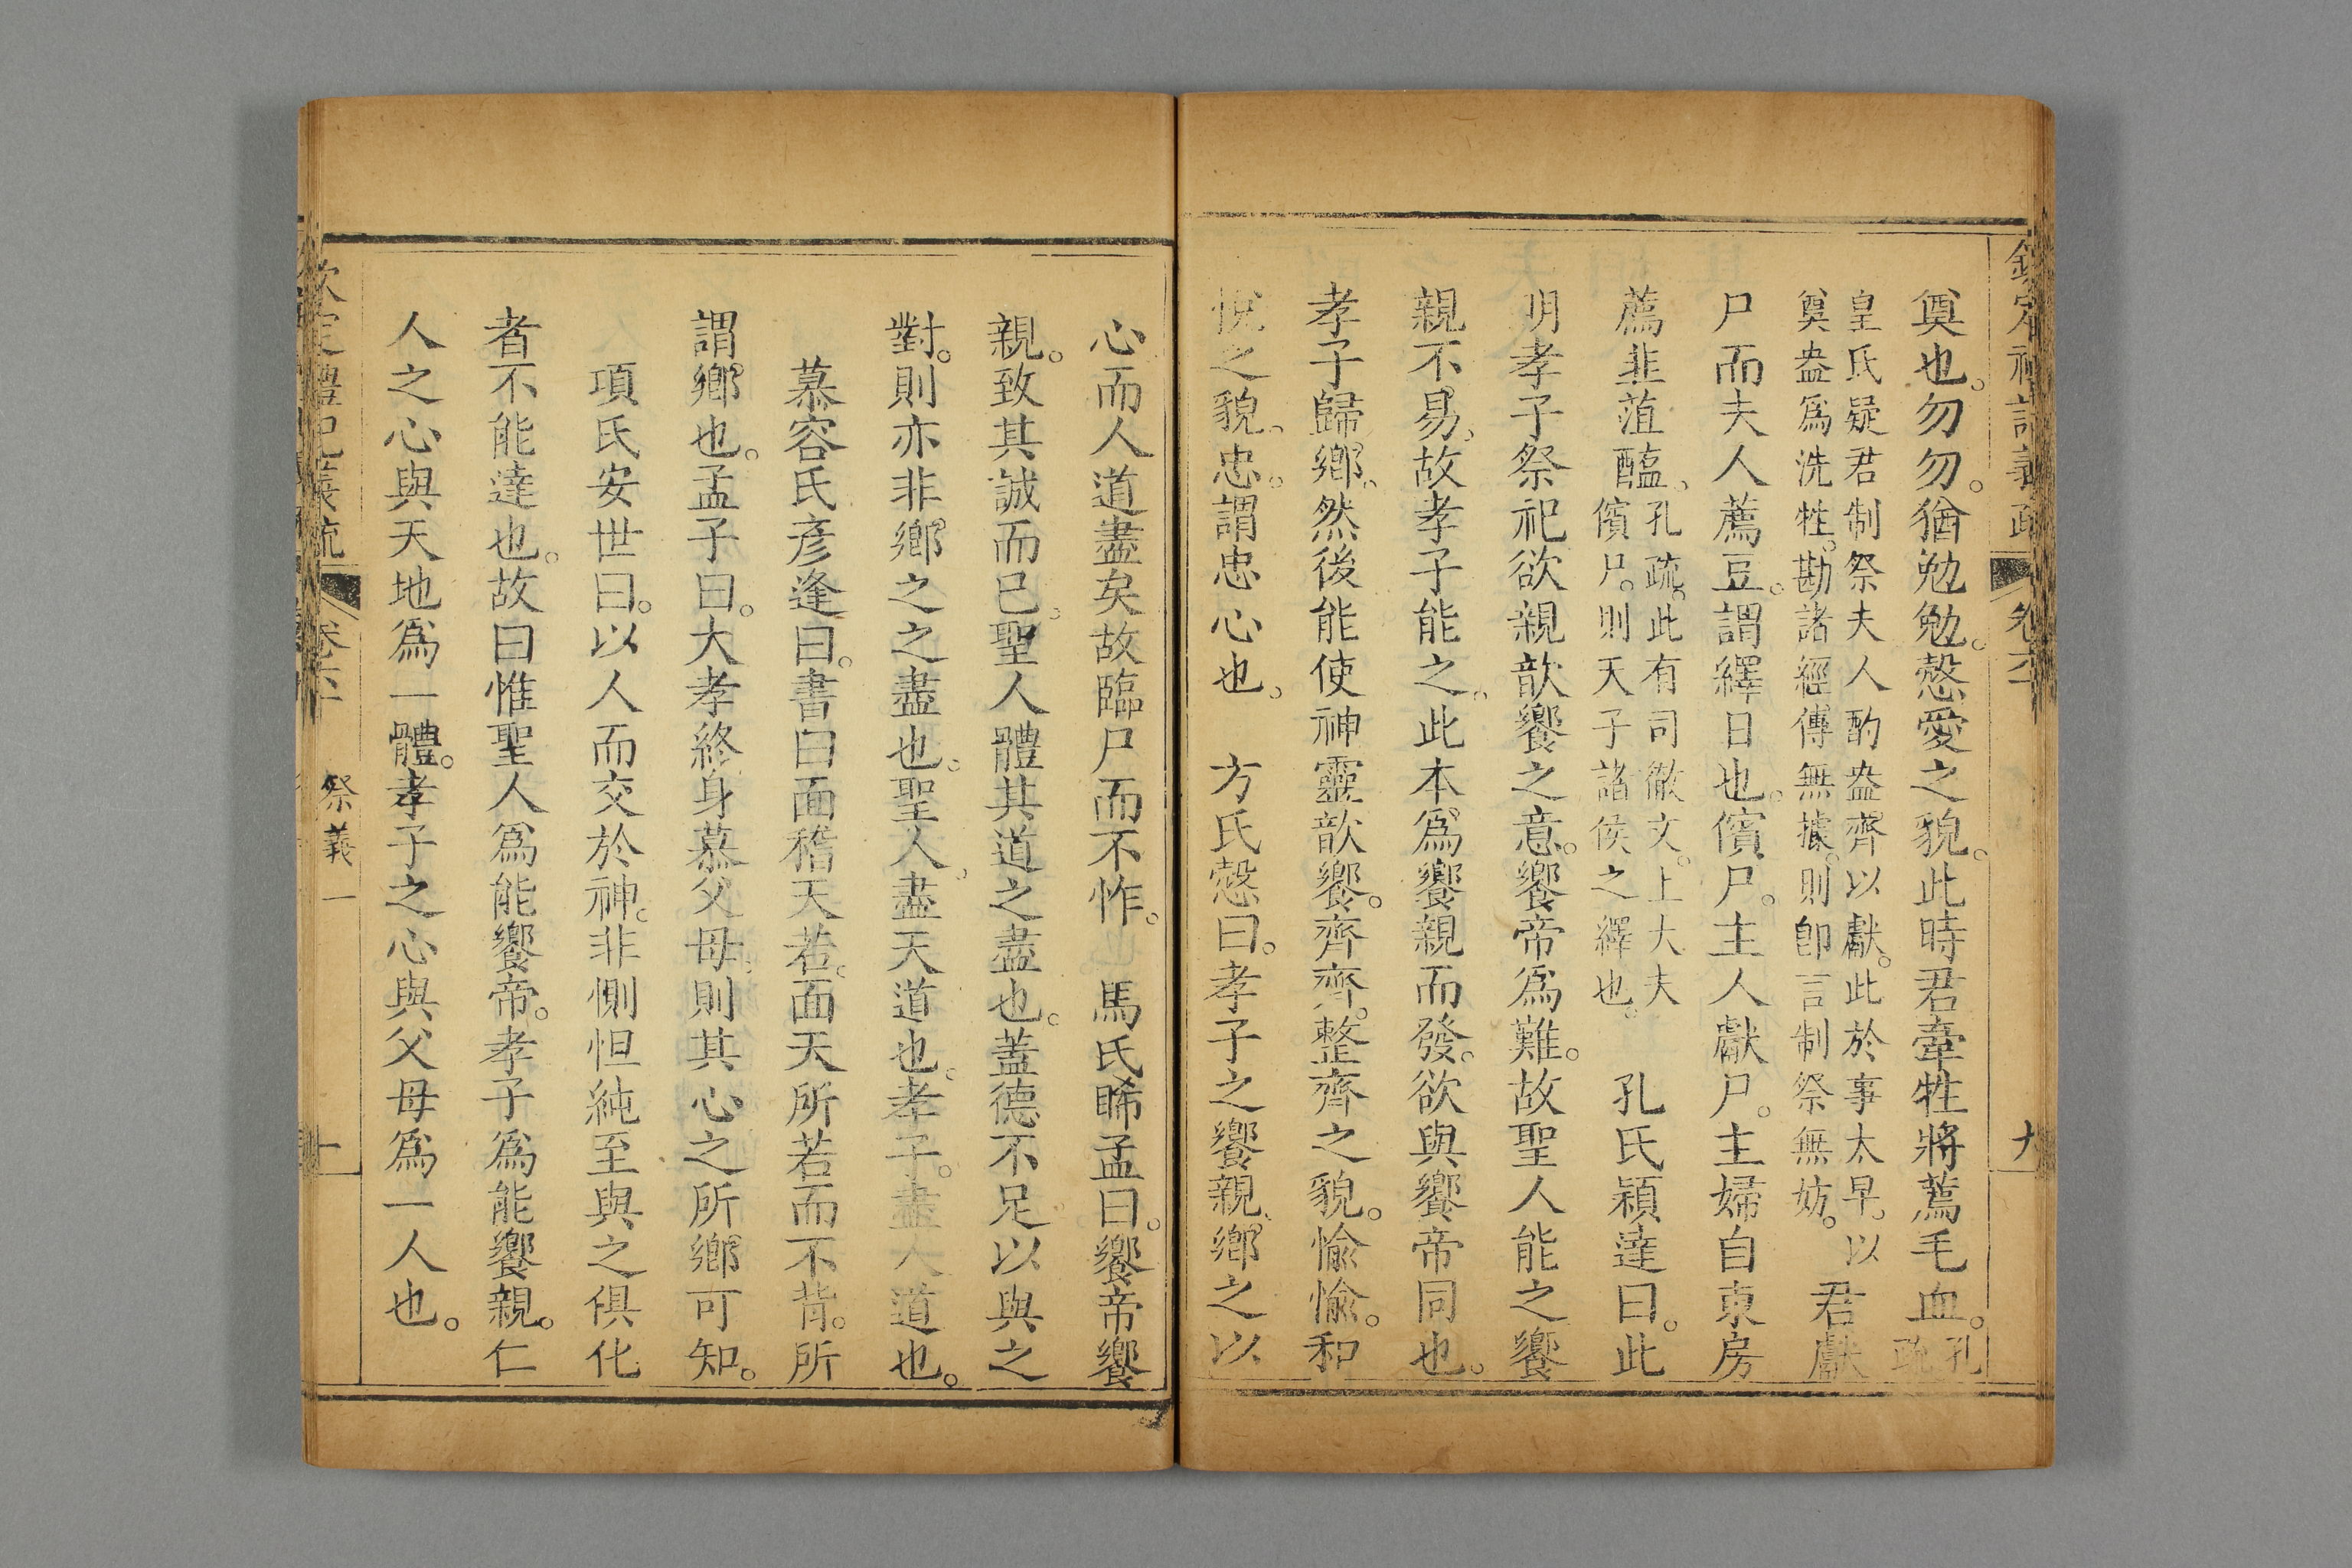 奠也。勿勿。猶勉勉。慤愛之貌。此時君牽牲將薦毛血。孔疏
皇氏疑君制祭夫人酌盎齊以獻。此於事太早。以
奠盎爲洗牲。勘諸經傳無據。則卽言制祭無妨。君獻
尸而夫人薦豆。謂繹日也。儐尸。主人獻尸。主婦自東房
薦韭菹醢。孔疏。此有司徹文。上大夫
儐尸。則天子諸侯之繹也。 孔氏穎達曰。此
明孝子祭祀欲親歆饗之意。饗帝爲難。故聖人能之饗
親不易。故孝子能之。此本爲饗親而發。欲與饗帝同也。
孝子歸鄉。然後能使神靈歆饗。齊齊。整齊之貌。愉愉。和
悅之貌。忠。謂忠心也。 方氏慤曰。孝子之饗親。鄉之以
心而人道盡矣故臨尸而不怍。 馬氏晞孟曰。饗帝饗
親。致其誠而已。聖人體其道之盡也。蓋德不足以與之
對。則亦非鄉之之盡也。聖人。盡天道也。孝子。盡人道也。
慕容氏彥逢曰。書曰面稽天若。面天所若而不背。所
謂鄉也。孟子曰。大孝終身慕父母。則其心之所鄉可知。
項氏安世曰。以人而交於神。非惻怛純至與之俱化
者不能達也。故曰惟聖人爲能饗帝。孝子爲能饗親。仁
人之心與天地爲一體。孝子之心與父母爲一人也。
祭義一